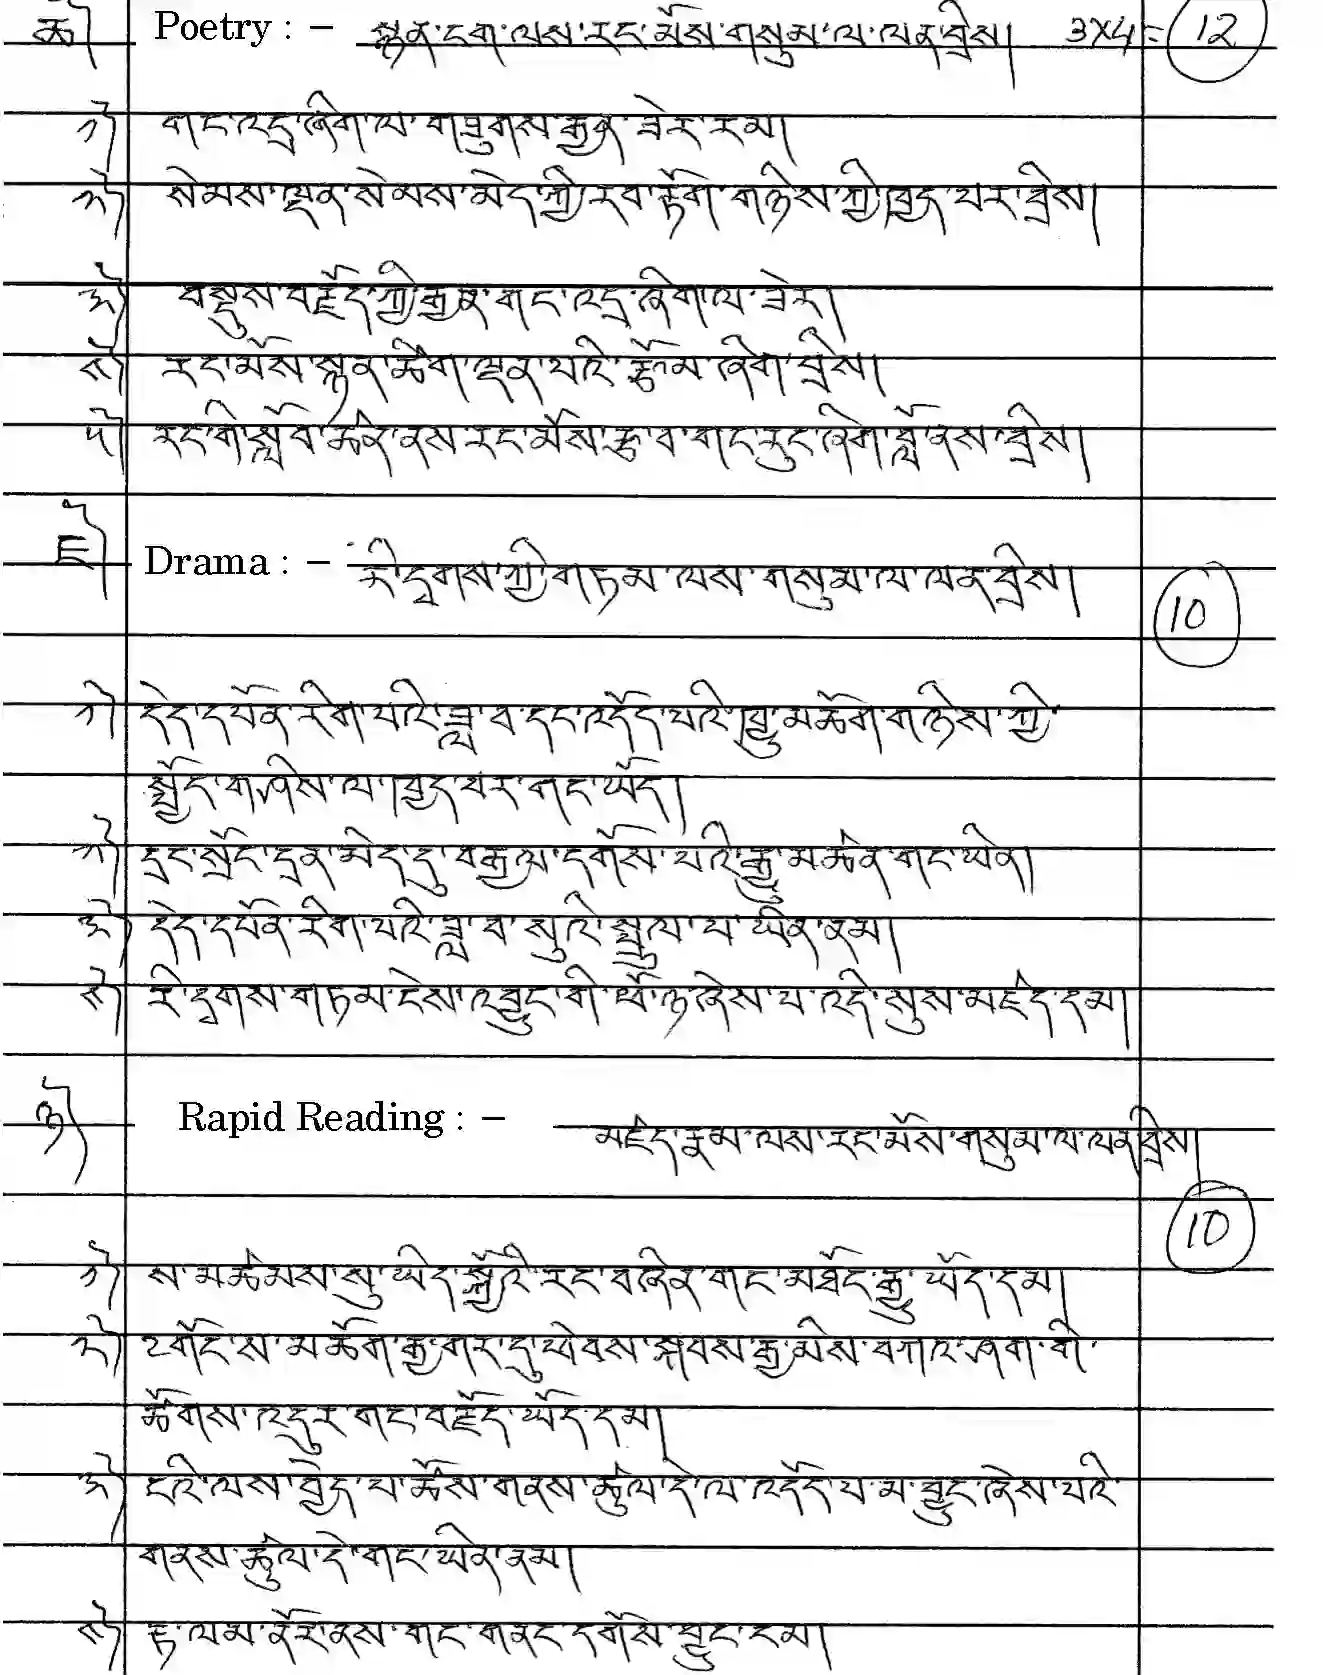 ཆ) Poetry : – སྙན་ངག་ལས་རང་མོས་གསུམ་ལ་ལན་བྲིས། 3X4= 12
༡) གང་འདྲ་ཞིག་ལ་གཟུགས་རྒྱན་ཟེར་རམ།
༢) སེམས་ལྡན་སེམས་མེད་ཀྱི་རབ་རྟོག་གཉིས་ཀྱི་ཁྱད་པར་བྲིས།
༣) བསྡུས་བརྗོད་ཀྱི་རྒྱན་གང་འདྲ་ཞིག་ལ་ཟེར།
༤) རང་མོས་སྙན་ཚིག་ལྡན་པའི་རྩོམ་ཞིག་བྲིས།
༥) རང་གི་སློབ་ཚན་ནས་རང་མོས་རྩ་བ་གང་རུང་ཞིག་བློ་ནས་བྲིས།
ཇ) Drama : – རི་དྭགས་ཀྱི་གཏམ་ལས་གསུམ་ལ་ལན་བྲིས། 10
༡) དེད་དཔོན་རིག་པའི་ཟླ་བ་དང་འདོད་པའི་བྱ་མཆོག་གཉིས་ཀྱི་
སྤྱོད་གཤིས་ལ་ཁྱད་པར་གང་ཡོད།
༡) དྲང་སྲོང་དྲན་མེད་དུ་བརྒྱལ་དགོས་པའི་རྒྱུ་མཚན་གང་ཡིན།
༣) དེད་དཔོན་རིག་པའི་ཟླ་བ་སུའི་སྤྲུལ་པ་ཡིན་ནམ།
༤) རི་དྭགས་གཏམ་ངེས་འབྱུང་གི་ཕོ་ཉ་ཞེས་པ་འདི་སུས་མཛད་དམ།
ཉ) Rapid Reading : – མཛད་རྣམ་ལས་རང་མོས་གསུམ་ལ་ལན་བྲིས། 10
༡) ས་མཚམས་སུ་ཡིད་སྐྱོའི་རང་བཞིན་གང་མཐོང་རྒྱུ་ཡོད་དམ།
༢) ༸གོང་ས་མཆོག་རྒྱ་གར་དུ་ཕེབས་སྐབས་རྒྱ་མིས་བཀའ་ཤག་གི་
ཚོགས་འདུར་གང་བརྗོད་ཡོད་དམ།
༣) ངའི་ལས་བྱེད་པ་ཚོས་གནས་ཚུལ་དེ་ལ་འདོད་པ་མ་བྱུང་ཞེས་པའི་
གནས་ཚུལ་དེ་གང་ཡིན་ནམ།
༤) རྟ་ལམ་ནོར་ནས་གང་གནང་དགོས་བྱུང་ངམ།